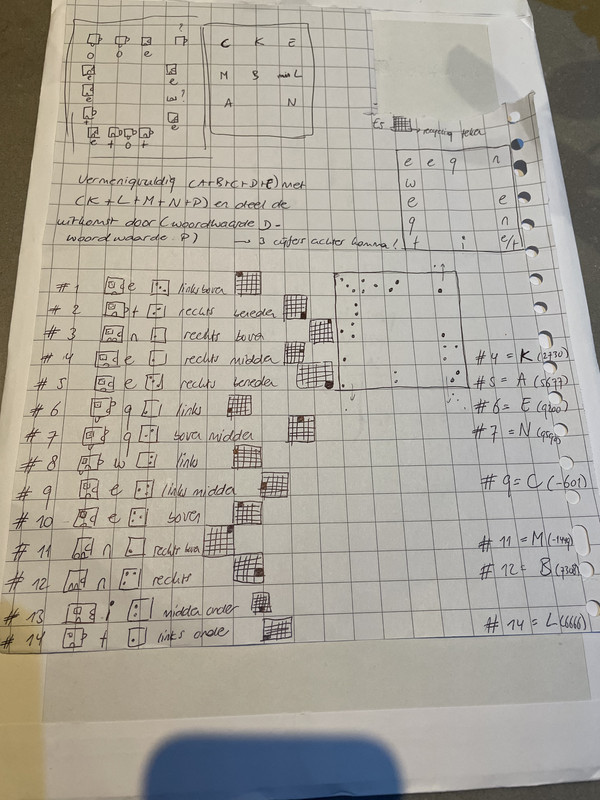 ?
o o e
e e
e w?
t e
e t o t
C K E
M B L
A N
e e q n
w
e e
q n
t i e/t
Vermenigvuldig (A+B+C+D+E) met
(K+L+M+N+P) en deel de
uitkomst door (woordwaarde D -
woordwaarde P) → 3 cijfers achter komma!
#1 e links boven
#2 t rechts beneden
#3 n rechts boven
#4 e rechts midden
#5 e rechts beneden
#6 q links
#7 q boven midden
#8 w links
#9 e links midden
#10 e boven
#11 n rechts boven
#12 n rechts
#13 i midden onder
#14 t links onder
#4 = K (2730)
#5 = A (5677)
#6 = E (9200)
#7 = N
#9 = C (-601)
#11 = M
#12 = B (7308)
#14 = L (6666)